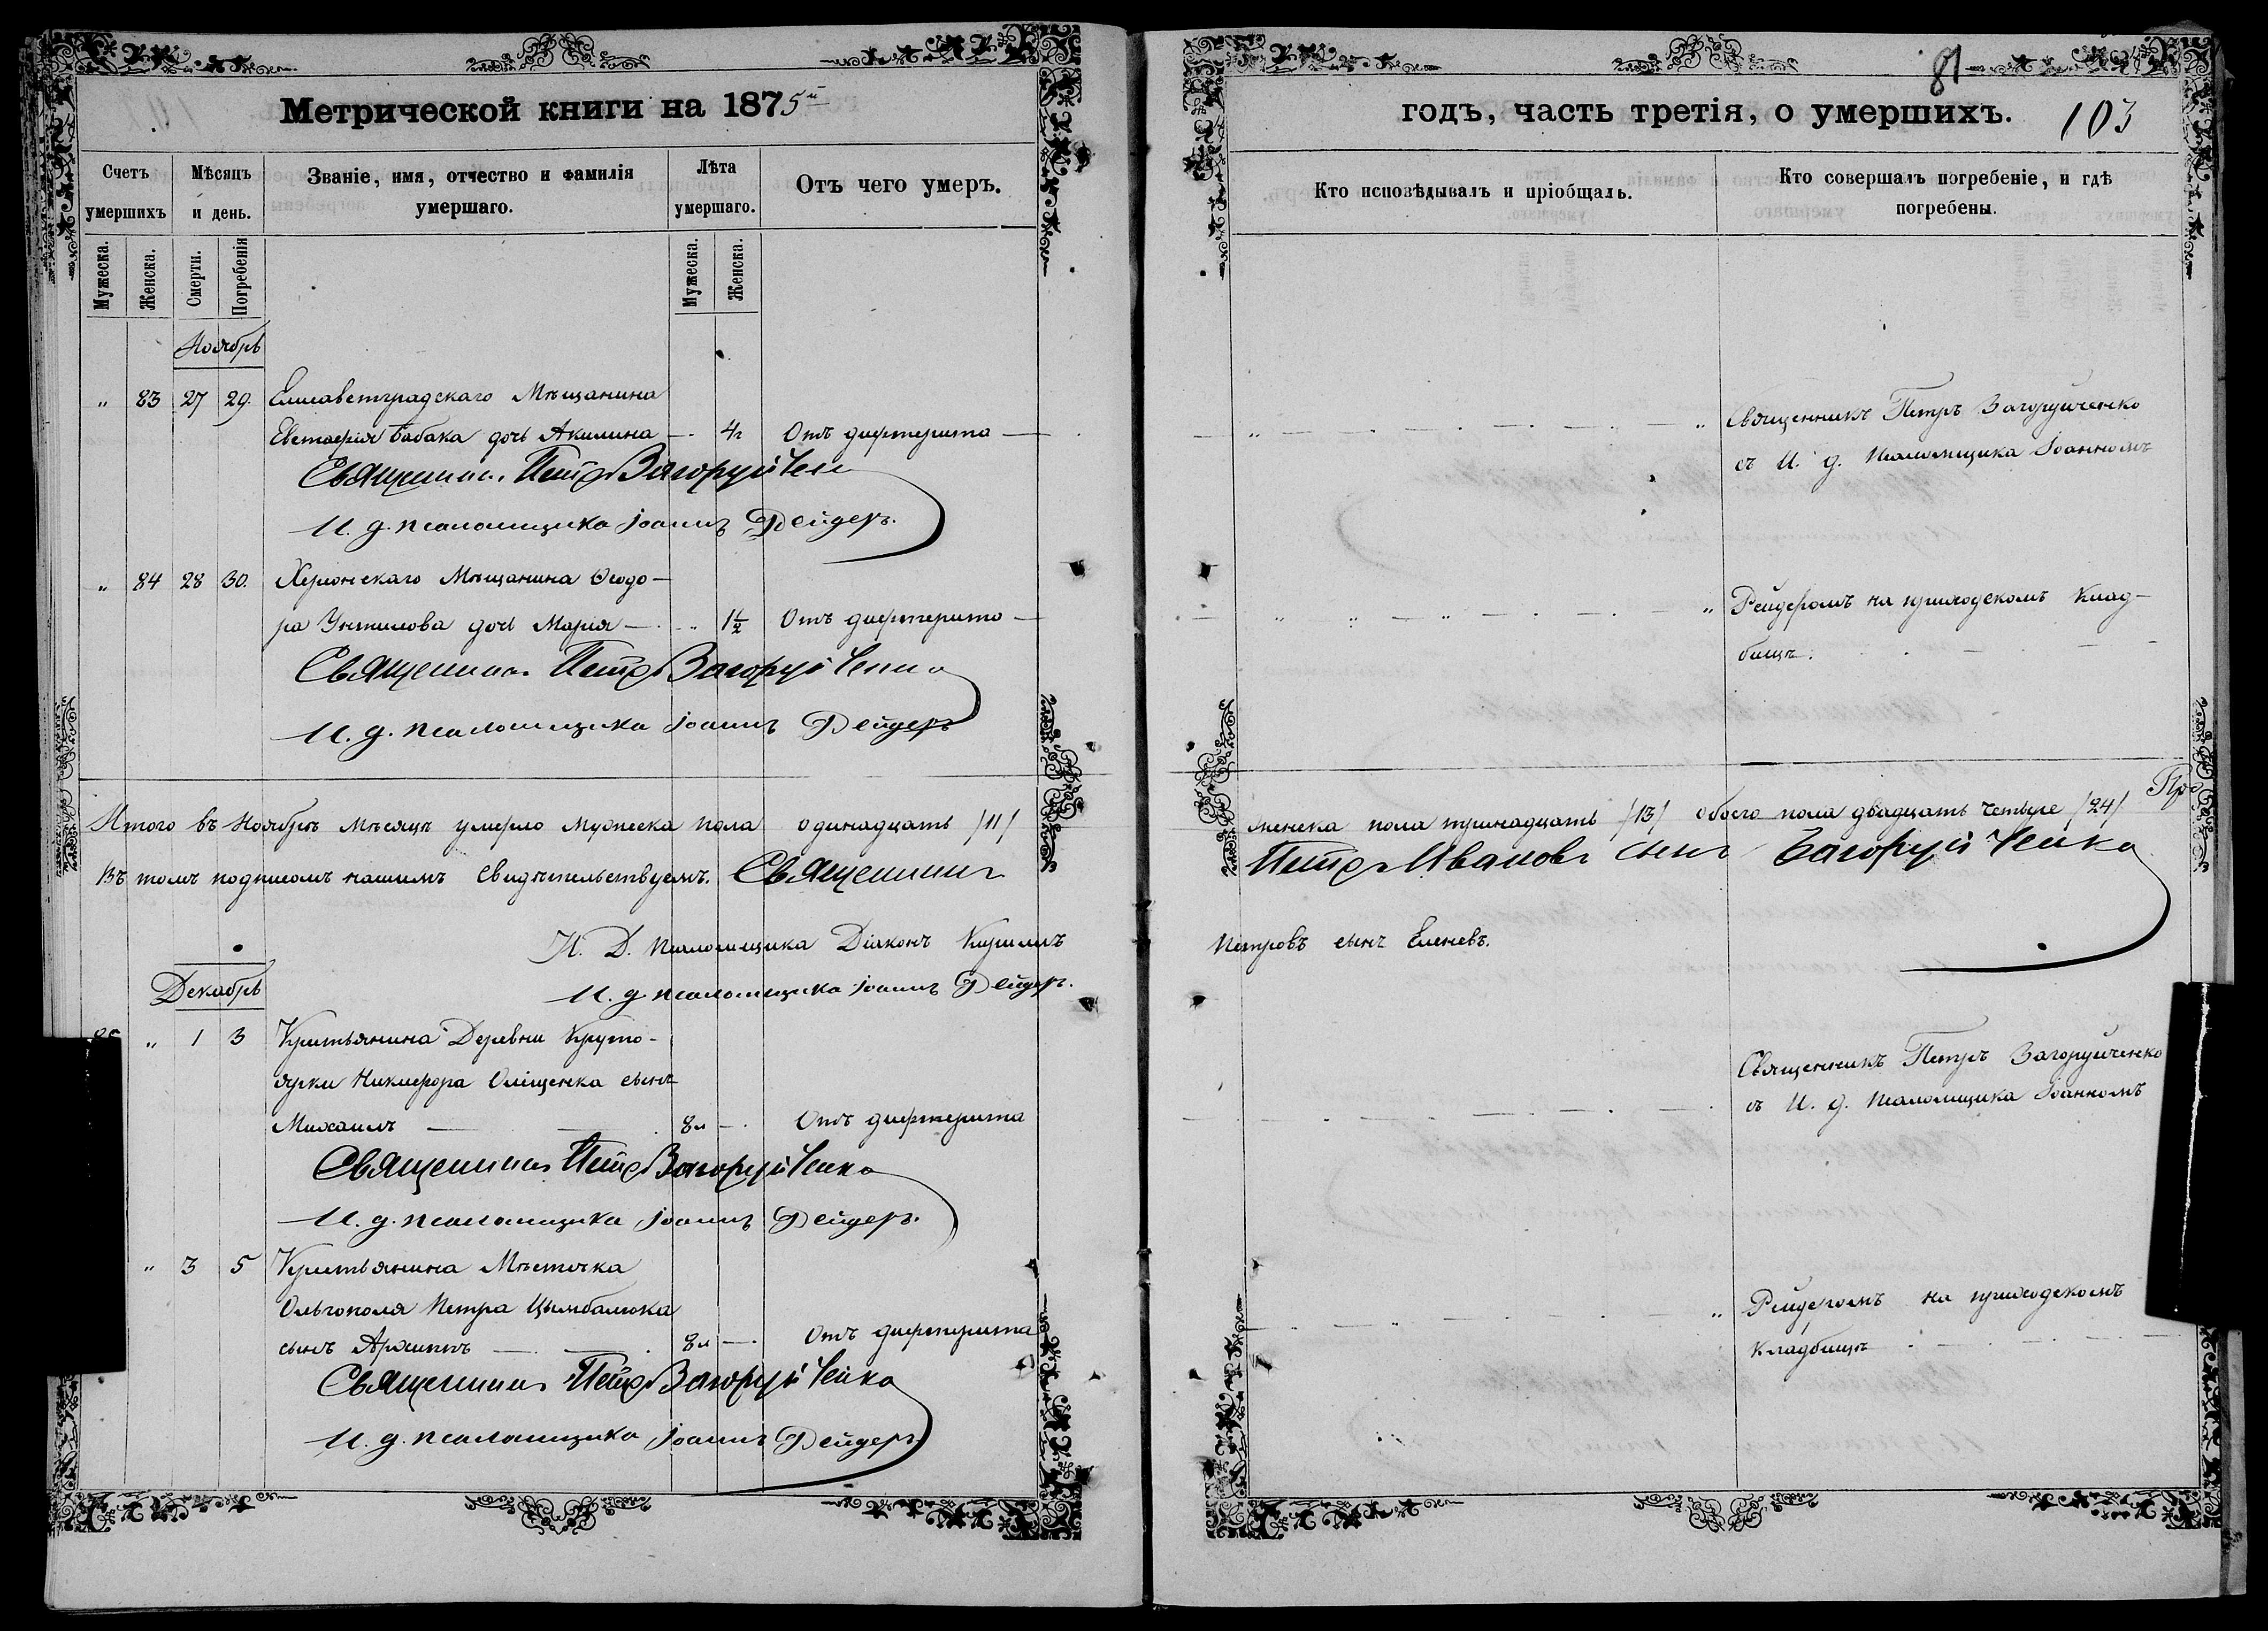 Метрической книги на 1875й
Счетъ умершихъ
Мѣсяцъ и день.
Званіе, имя, отчество и фамилія умершаго.
Лѣта умершаго.
Отъ чего умеръ.
Мужеска.
Женска.
Смерти.
Погребенія
Мужеска.
Женска.
Ноябрь
„ 83 27 29. Елисаветградскаго Мѣщанина
Евстафія Бабака дочь Акилина — 4 Отъ дифтерита —
Священникъ Петръ Загоруйченко
И. д. псаломщика Іоаннъ Рейдеръ.
„ 84 28 30. Херсонскаго Мѣщанина Ѳеодо-
ра Унтилова дочь Марія — „ 1½ Отъ дифтерита —
Священникъ Петръ Загоруйченко
И. д. псаломщика Іоаннъ Рейдеръ
Итого въ Ноябрѣ мѣсяцѣ умерло мужеска пола одинадцать /11/
Въ томъ подписомъ нашимъ свидѣтельствуемъ. Священникъ
И. Д. Псаломщика Діаконъ Кириллъ
И. д псаломщика Іоаннъ Рейдеръ.
Декабрь
„ 1 3 Крестьянина Деревни Круто-
ярки Никифора Оліщенка сынъ
Михаилъ — 8 л —. Отъ дифтерита
Священникъ Петръ Загоруйченко
И. д. псаломщика Іоаннъ Рейдеръ.
„ 3 5 Крестьянина Мѣстечка
Ольгополя Петра Цымбалюка
сынъ Архиппъ — 8 л —. Отъ дифтерита
Священникъ Петръ Загоруйченко
И. д. псаломщика Іоаннъ Рейдеръ
81
годъ, часть третія, о умершихъ. 103
Кто исповѣдывалъ и пріобщалъ.
Кто совершалъ погребеніе, и гдѣ погребены.
Священникъ Петръ Загоруйченко
съ И. д. Псаломщика Іоанномъ
Рейдеромъ на приходскомъ клад-
бищѣ.
женска пола тринадцать /13/ обоего пола двадцать четыре /24/
Петръ Ивановъ сынъ Загоруйченко
Петровъ сынъ Еленевъ.
Священникъ Петръ Загоруйченко
съ И. д. Псаломщика Іоанномъ
Рейдеромъ на приходскомъ
кладбищѣ